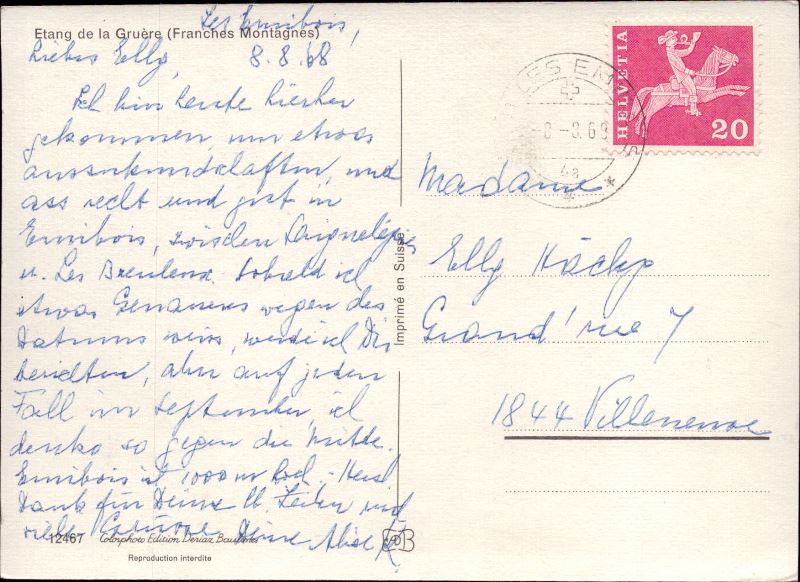 Etang de la Gruère (Franches Montagnes)
Les Emibois,
8.8.68
Liebes Elly,
Ich bin heute hierher
gekommen, um etwas
auszukundschaften, und
ass recht und gut in
Emibois, zwischen Saignelégier
u. Les Breuleux. Sobald ich
etwas Genaueres wegen des
Datums weiss, werde ich Dir
berichten, aber auf jeden
Fall im September, ich
denke so gegen die Mitte.
Emibois ist 1000 m hoch. - Herzl.
Dank für Deine lb. Zeilen und
viele Deine Alice
12467 Colorphoto Edition Deriaz Baulmes
Reproduction interdite
Imprimé en Suisse
LES EM
-8-8.68
HELVETIA
20
Madame
Elly
Grand'rue 7
1844 Villeneuve